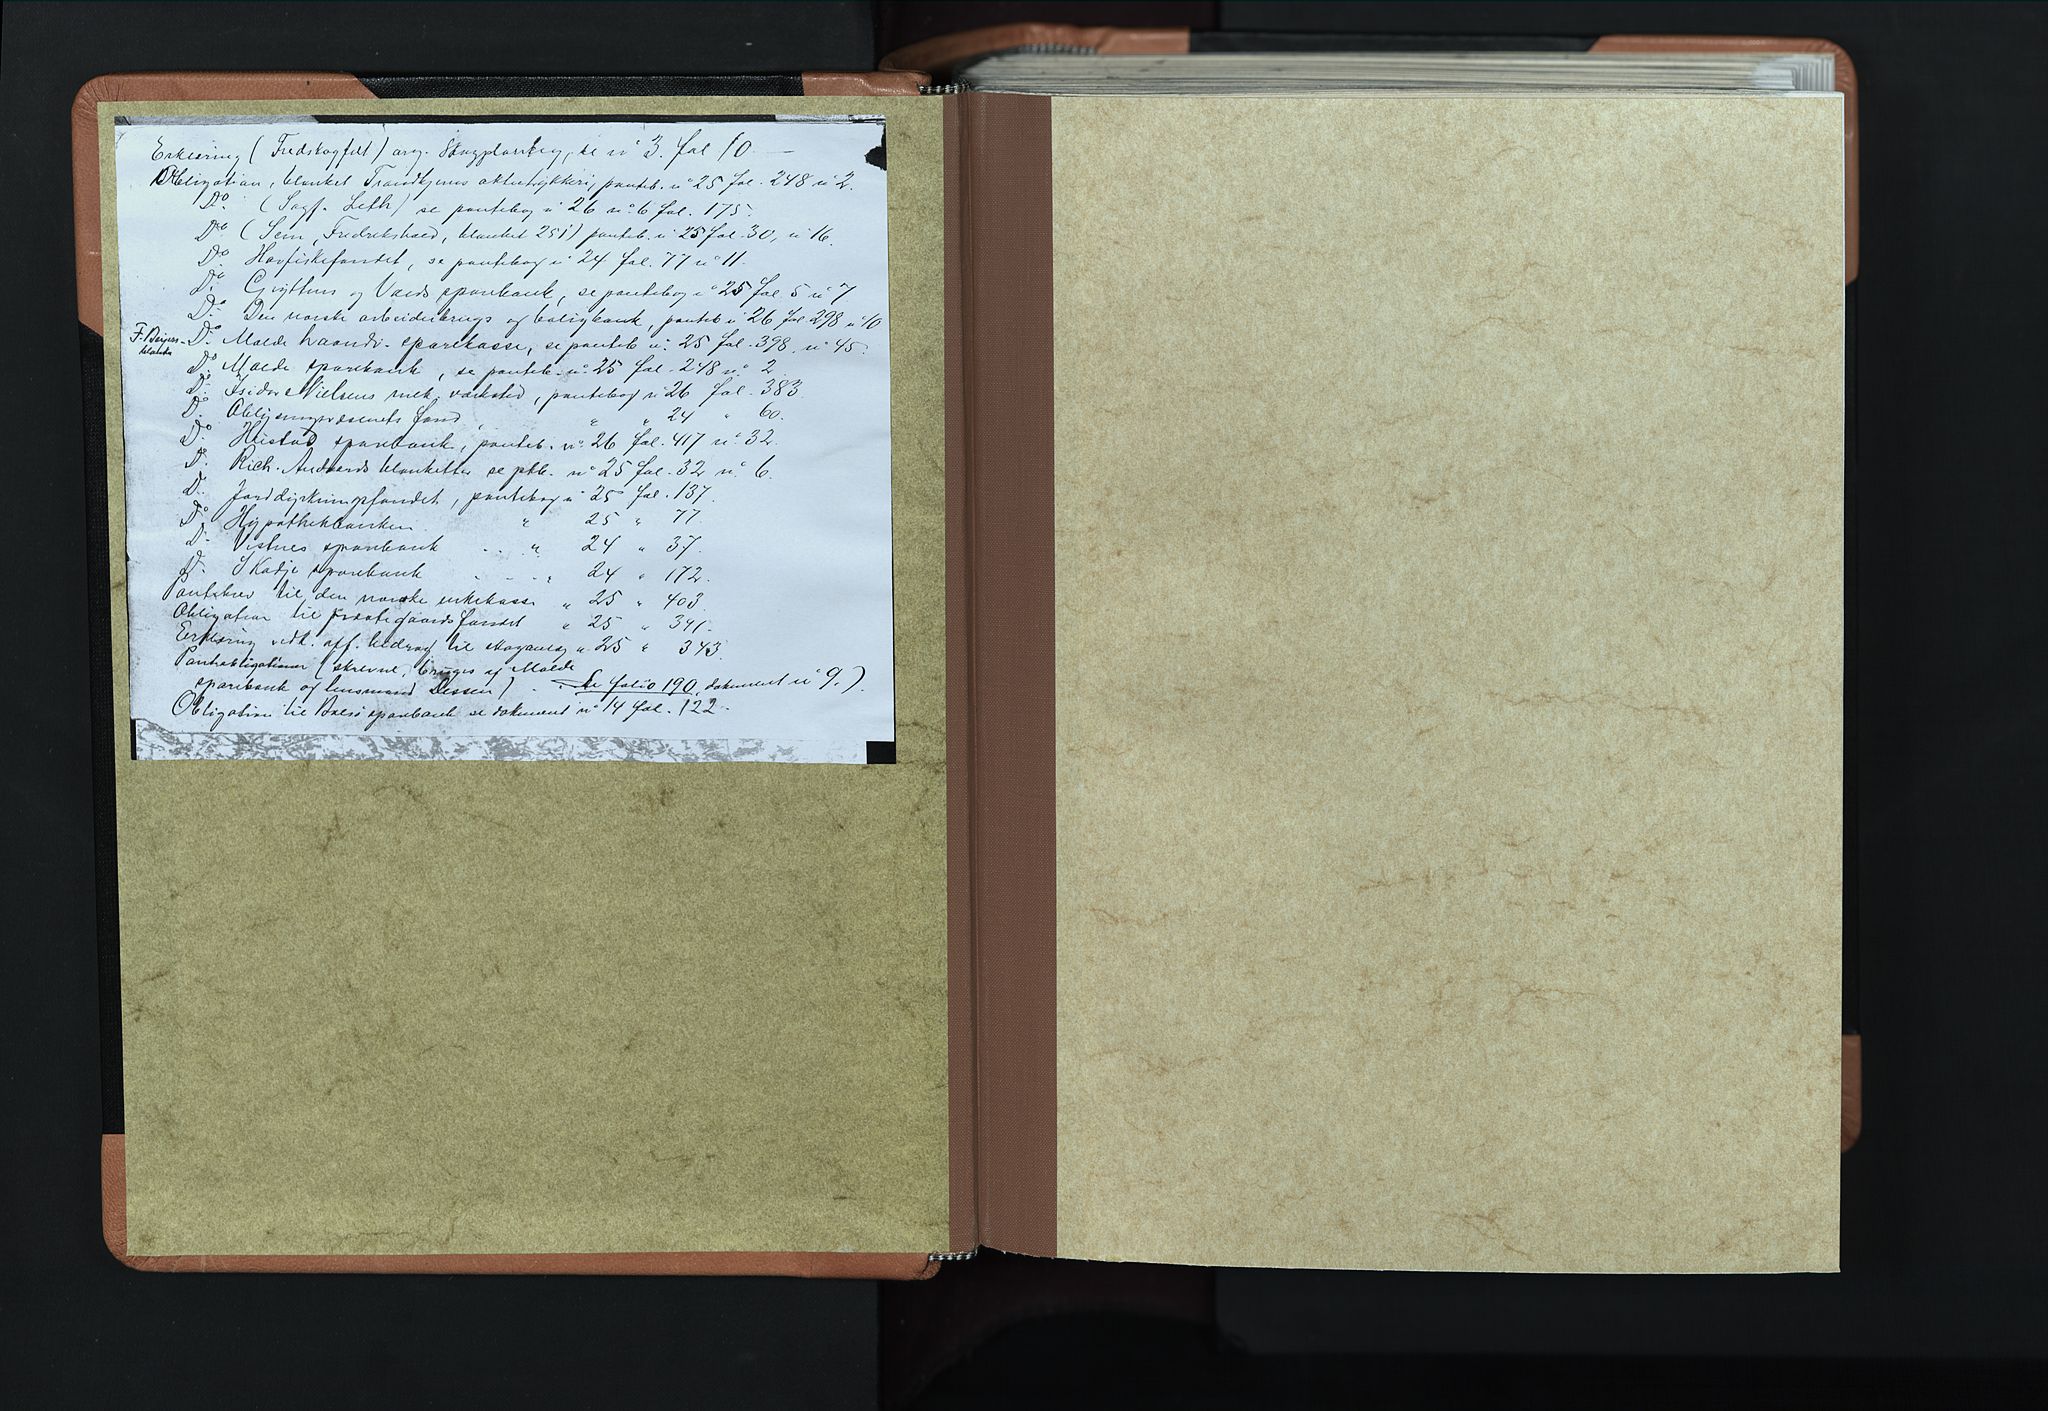 Erklæring (Fredskogfelt) ang. Skogplanting, se nº 3. fol 10
Obligation, blanket Trondhjems aktietrykkeri, panteb. nº 25 fol. 248 nº 2.
Dº (Sagf. Leth) se pantebog nº 26 nº 6 fol. 175.
Dº (Sem, Fredrikshald, blanket 251) panteb. nº 25 fol. 30, nº 16.
Dº Havfiskefondet, se pantebog nº 24 fol. 77 nº 11.
Dº Gryttens og Voeds sparebank, se pantebog nº 25 fol. 5 nº 7
Dº Den norske arbeiderbrugs og boligbank, panteb nº 26 fol. 298 nº 10
F. Beyers blanket Dº Molde haandv. sparekasse, se panteb nº 25 fol. 398. nº 45.
Dº Molde sparebank, se panteb. nº 25 fol. 248 nº 2
Dº Isidor Nielsens mek. verksted, pantebog nº 26 fol. 383.
Dº Oplysningsvæsenets fond, " " 24 " 60.
Dº Hustad sparebank, panteb. nº 26 fol. 417 nº 32.
Dº Rich. Andvords blanketter se ptb. nº 25 fol. 32 nº 6.
Dº Jorddyrkningsfondet, pantebog nº 25 fol. 137
Dº Hypothekbanken " 25 " 77
Dº Vistnes sparebank " 24 " 37.
Dº Skodje sparebank " 24 " 172.
Pantebrev til den norske enkekasse " 25 " 403
Obligation til præstegaardsfondet " 25 " 341.
Erklæring vedk. off. bidrag til skoganlæg " 25 " 343
Panteobligationer (skrevne, bruges af Molde
sparebank og lensmand Dessen) . . Se folio 190, dokument nº 9.).
Obligation til Bolsø sparebank se dokument nº 14 fol. 122.